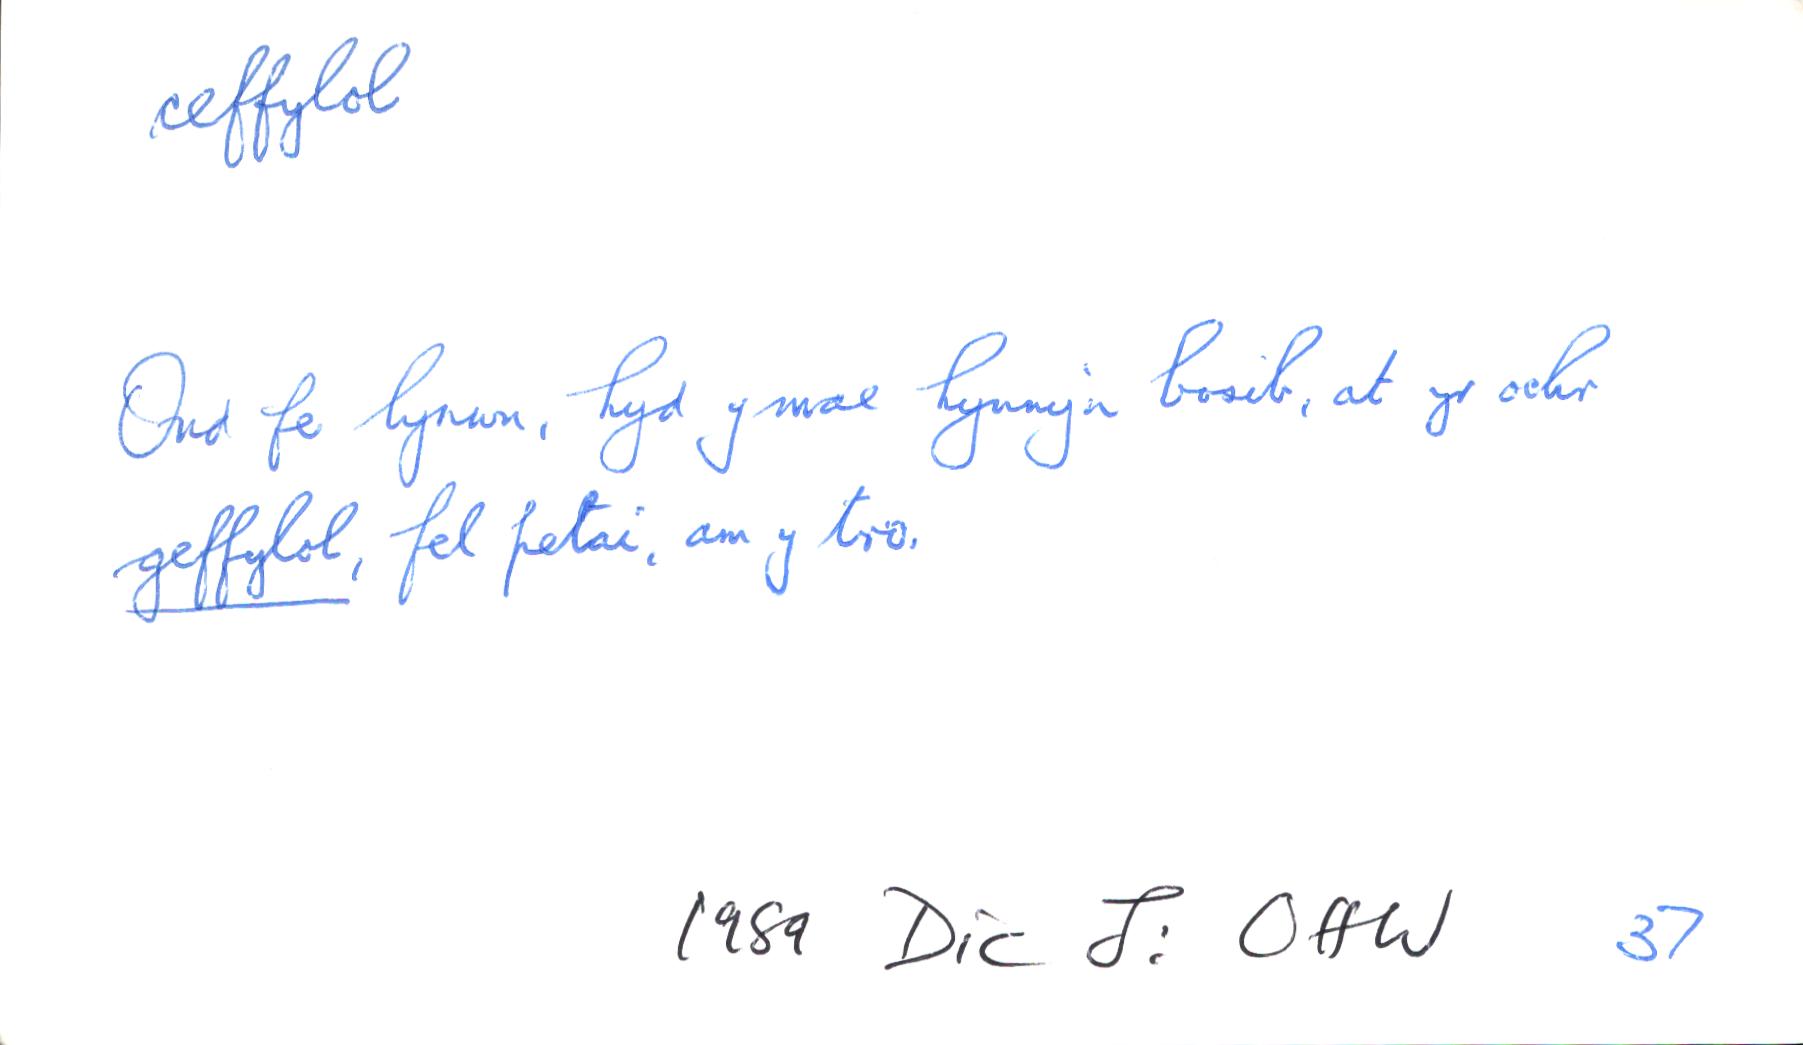 ceffylol
Ond fe lynwn, hyd y mae hynny'n bosib, at yr ochr
geffylol, fel petai, am y tro.
1989 Dic J: OHW 37